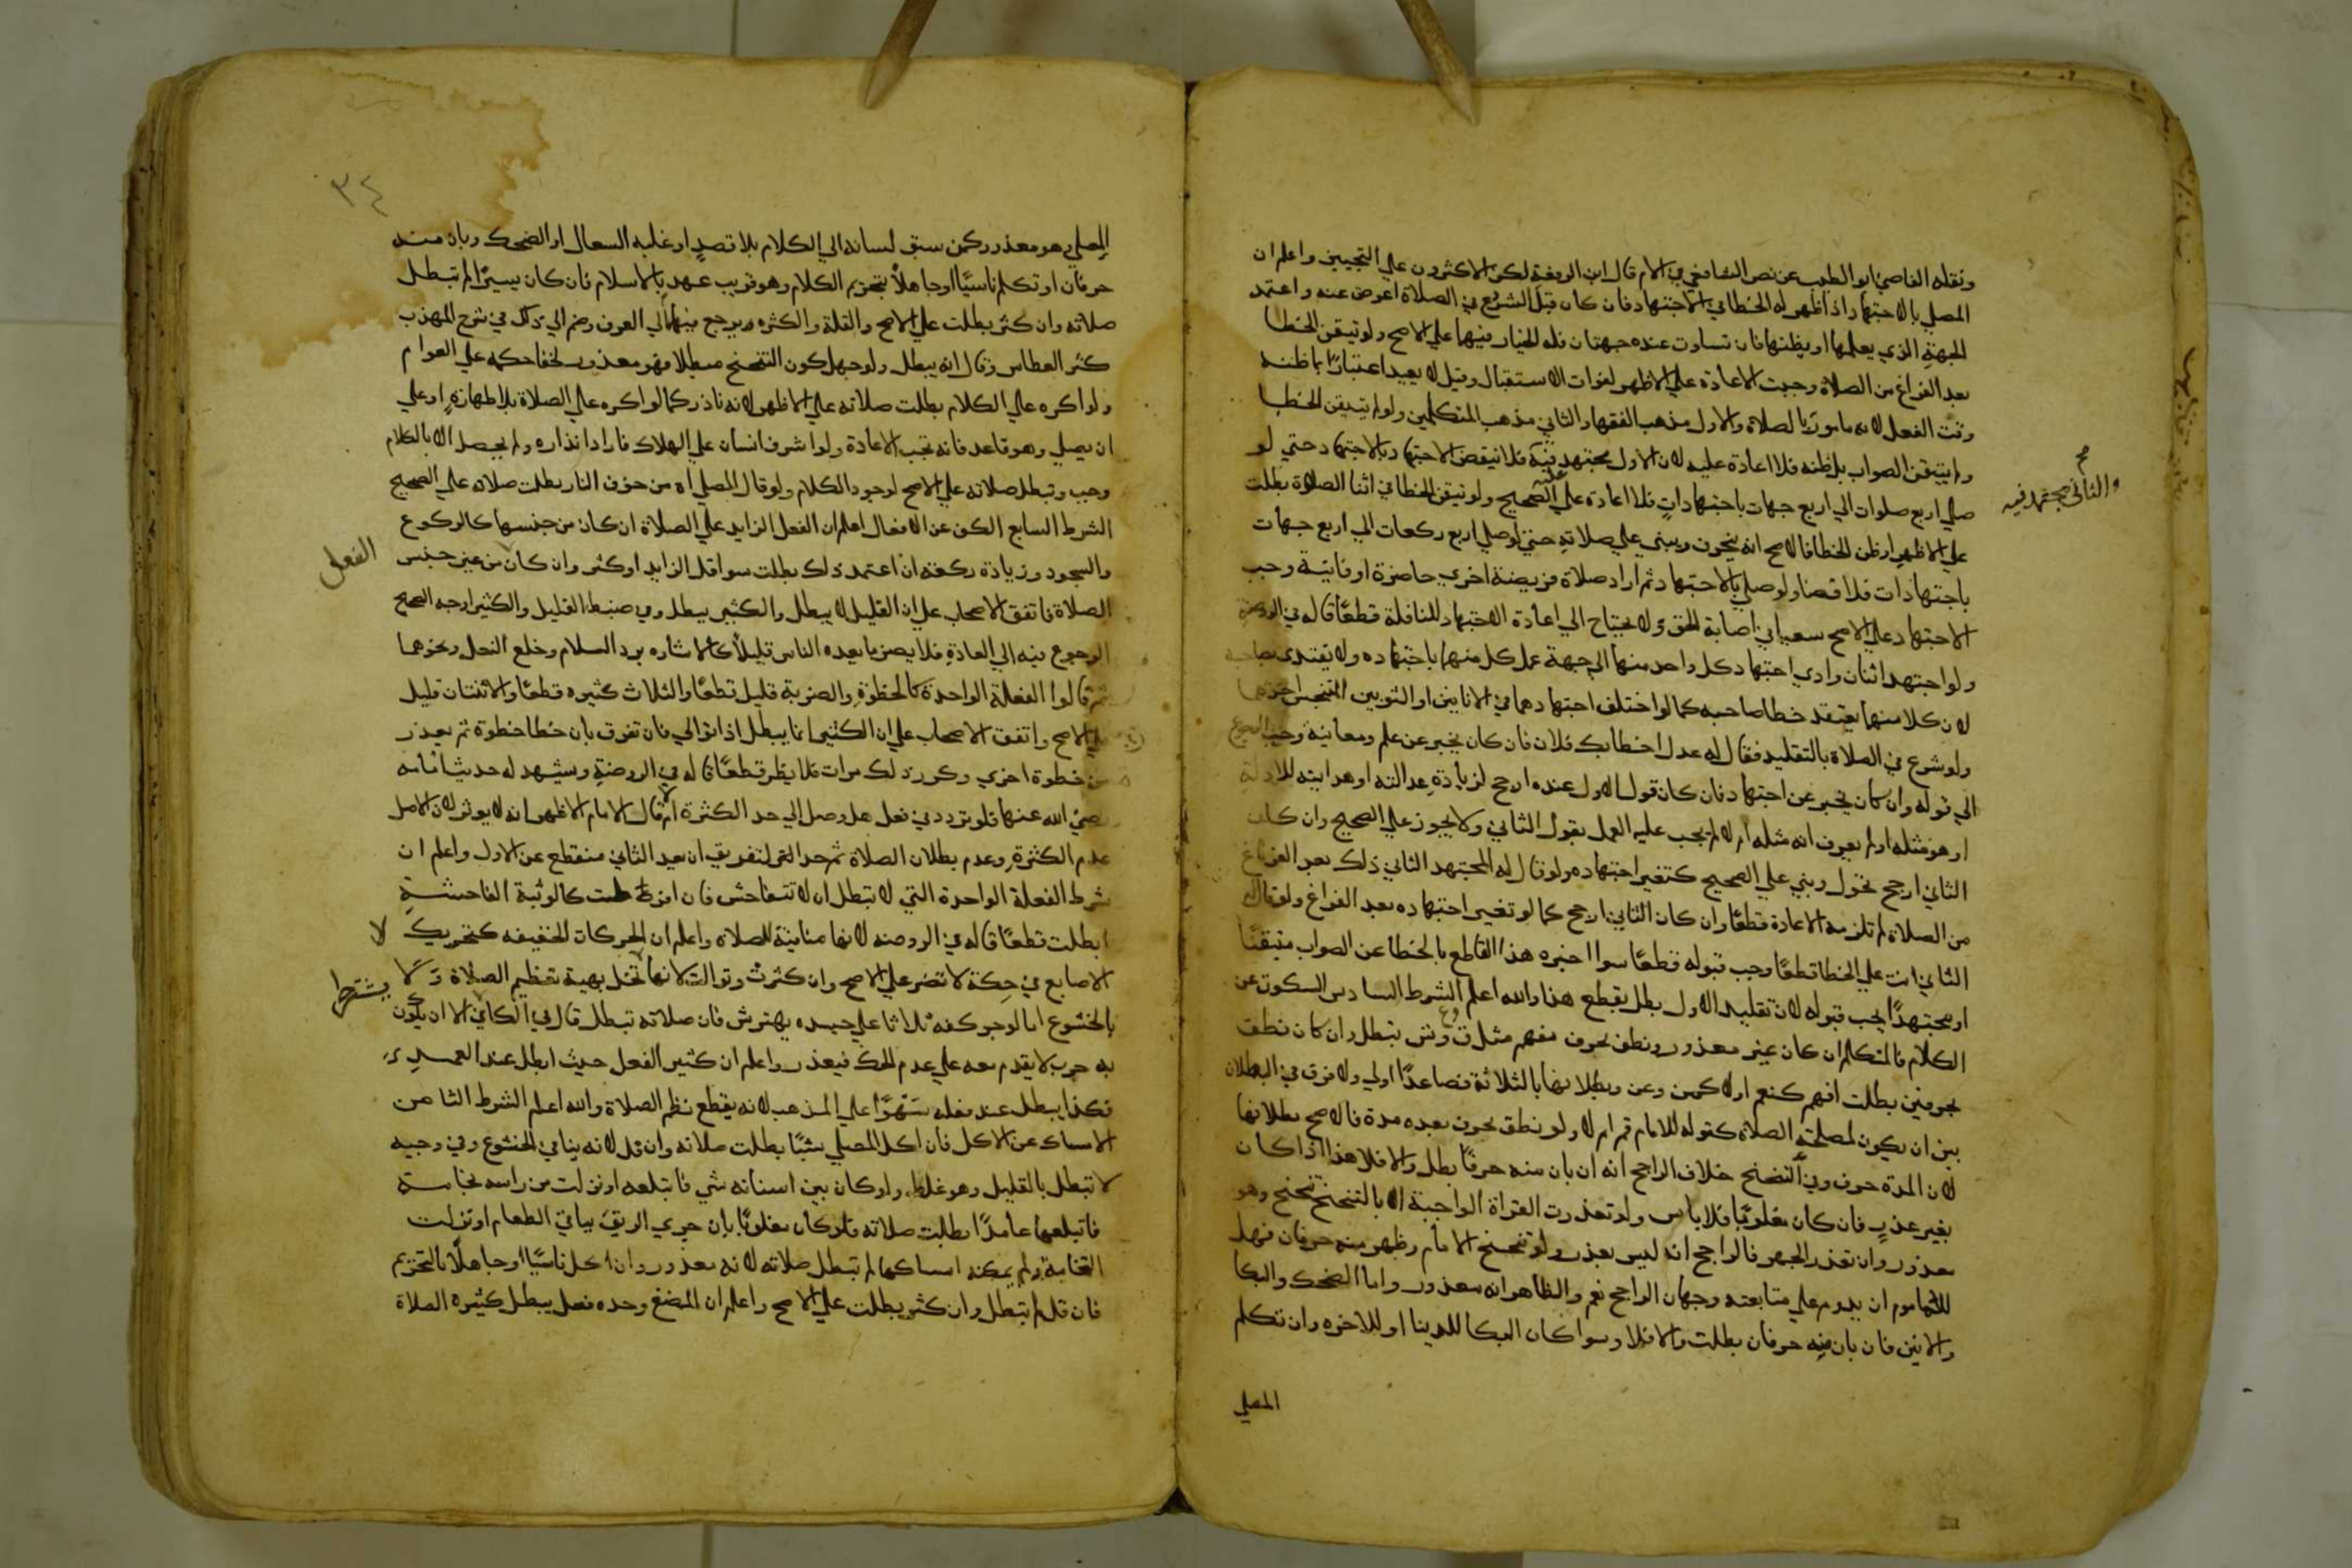 ونقله القاضي ابو الطيب عن نص الشافعي في الام قال ابن الرفعة لكن الاكثرون علي التجنيس واعلم ان
المصلي بالاجتهاد اذا ظهر له الخطا في الاجتهاد فان كان قبل الشروع في الصلاة اعرض عنه واعتمد
الجهة الذي يعلمها او يظنها فان تساوت عنده جهتان فله الخيار فيها علي الاصح ولو تيقن الخطا
بعد الفراغ من الصلاة وجبت الاعادة علي الاظهر لفوات الاستقبال وقيل لا يعيد اعتبارا بما ظنه
وقت الفعل لانه مامور بالصلاة والاول مذهب الفقها والثاني مذهب المتكلمين ولو لم يتيقن الخطا
ولم يتيقن الصواب بل ظنه فلا اعادة عليه لان الاول مجتهد فيه فلا ينقض الاجتهاد بالاجتهاد حتي لو
والثاني مجتهد فيه
صلي اربع صلوات الي اربع جهات باجتهادات فلا اعادة عليه علي الصحيح ولو تيقن الخطا في اثنا الصلاة بطلت
علي الاظهر او ظن الخطا فالاصح انه ينحرف ويبني علي صلاته حتي لو صلي اربع ركعات الي اربع جهات
باجتهادات فلا قضا ولو صلي بالاجتهاد ثم اراد صلاة فريضة اخري حاضرة او فايتة وجب
الاجتهاد علي الاصح سعيا في اصابة الحق ولا يحتاج الي اعادة الاجتهاد للنافلة قطعا قاله في الروضة
ولو اجتهد اثنان وادي اجتهاد كل واحد منهما الي جهة عمل كل منهما باجتهاده ولا يقتدي بصاحبه
لان كلا منهما يعتقد خطا صاحبه كما لو اختلف اجتهادهما في الانايين او الثوبين المتنجس احدهما
ولو شرع في الصلاة بالتقليد فقال له عدل اخطا بك فلان فان كان يخبر عن علم ومعاينة وجب الرجوع
الي قوله وان كان يخبر عن اجتهاد فان كان قول الاول عنده ارجح لزيادة عدالته او هدايته للادلة
او هو مثله او لم يعرف انه مثله ام لا لم يجب عليه العمل بقول الثاني ولا يجوز علي الصحيح وان كان
الثاني ارجح تحول وبني علي الصحيح كتغير اجتهاده ولو قال له المجتهد الثاني ذلك بعد الفراغ
من الصلاة لم تلزمه الاعادة قطعا وان كان الثاني ارجح كما لو تغير اجتهاده بعد الفراغ ولو قال له
الثاني انت علي الخطا قطعا وجب قبوله قطعا سوا اخبره هذا القاطع بالخطا عن الصواب متيقنا
او مجتهدا يجب قبوله لان تقليد الاول بطل بقطع هذا والله اعلم الشرط السادس السكوت عن
الكلام فالمتكلم ان كان غير معذور ونطق بحرف مفهم مثل ق وع وش بتبطل وان كان نطق
بحرفين بطلت افهم كنعم او لا كمن وعن وبطلانها بالثلاثة فصاعدا اولي ولا فرق في البطلان
بين ان يكون لمصلحة الصلاة كقوله للامام قم ام لا ولو نطق بحرف بعده مدة فالاصح بطلانها
لان المدة حرف وفي التنحنح خلاف الراجح انه ان بان منه حرفان بطل والا فلا هذا اذا كان
بغير عذر فان كان مغلوبا فلا باس ولو تعذرت القراة الواجبة الا بالتنحنح تنحنح وهو
معذور وان تعذر الجهر فالراجح انه ليس بعذر ولو تنحنح الامام وظهر منه حرفان فهل
للماموم ان يدوم علي متابعته وجهان الراجح نعم والظاهر انه معذور واما الضحك والبكا
والانين فان بان منه حرفان بطلت والا فلا وسوا كان البكا للدنيا او للاخره وان تكلم
المصلي
٣٤
المصلي وهو معذور كمن سبق لسانه الي الكلام بلا قصد او غلبه السعال او الضحك وبان منه
حرفان او تكلم ناسيا او جاهلا بتحريم الكلام وهو قريب عهد بالاسلام فان كان يسيرا لم تبطل
صلاته وان كثر بطلت علي الاصح والقلة والكثره يرجع فيهما الي العرف وضم الي ذلك في شرح المهذب
كثر العطاس وقال انه يبطل ولو جهل كون التنحنح مبطلا فهو معذور لخفا حكمه علي العوام
ولو اكره علي الكلام بطلت صلاته علي الاظهر لانه نادر كما لو اكره علي الصلاة بلا طهارة او علي
ان يصلي وهو قاعد فانه تجب الاعادة ولو اشرف انسان علي الهلاك فاراد انذاره ولم يحصل الا بالكلام
وجب وتبطل صلاته علي الاصح لوجود الكلام ولو قال المصلي اه من خوف النار بطلت صلاته علي الصحيح
الشرط السابع الكف عن الافعال اعلم ان الفعل الزايد علي الصلاة ان كان من جنسها كالركوع
والسجود وزيادة ركعة ان اعتمد ذلك بطلت سوا قل الزايد او كثر وان كان من غير جنس
الفعل
الصلاة فاتفق الاصحاب علي ان القليل لا يبطل والكثير يبطل وفي ضبط القليل والكثير اوجه الصحيح
الرجوع فيه الي العادة فلا يضر ما يعده الناس قليلا كالاشاره برد السلام وخلع النعل ونحوهما
ثم قالوا الفعلة الواحدة كالخطوة والضربة قليل قطعا والثلاث كثيره قطعا والاثنتان قليل
علي الاصح واتفق الاصحاب علي ان الكثير انما يبطل اذا توالي فان تفرق بان خطا خطوة ثم بعد زمن
خطوة اخري وكرر ذلك مرات فلا يظر قطعا قاله في الروضة ويشهد له حديث امامه
رضي الله عنها فلو تردد في فعل هل وصل الي حد الكثرة ام لا قال الامام الاظهر انه لا يوثر لان الاصل
عدم الكثرة وعدم بطلان الصلاة ثم حد التفريق ان يعد الثاني منقطع عن الاول واعلم ان
شرط الفعلة الواحدة التي لا تبطل ان لا تتفاحش فان افرطت كالوثبة الفاحشة
ابطلت قطعا قاله في الروضه لانها منافية للصلاه واعلم ان الحركات الخفيفه كتحريك
الاصابع في حكة لا تضر علي الاصح وان كثرت وتوالت لانها لا تخل بهية تعظيم الصلاة ولا
يشترط
بالخشوع اما لو حرك كفه ثلاثا علي جسده يهترش فان صلاته تبطل قال في الكافي الا ان يكون
به جرب لا يقدر معه علي عدم الحك فيعذر واعلم ان كثير الفعل حيث ابطل عند العمد
فكذا يبطل عند فعله سهوا علي المذهب لانه يقطع نظم الصلاة والله اعلم الشرط الثامن
الامساك عن الاكل فان اكل المصلي شيئا بطلت صلاته وان قل لانه ينافي الخشوع وفي وجه
لا تبطل بالقليل وهو غلط ولو كان بين اسنانه شي فابتلعه او نزلت من راسه نخامة
فابتلعها عامدا بطلت صلاته فلو كان مغلوبا بان جري الريق بباقي الطعام او نزلت
النخامة ولم يمكنه امساكها لم تبطل صلاته لانه معذور وان اكل ناسيا او جاهلا بالتحريم
فان قل لم تبطل وان كثر بطلت علي الاصح واعلم ان المضغ وحده فعل يبطل كثيره الصلاة